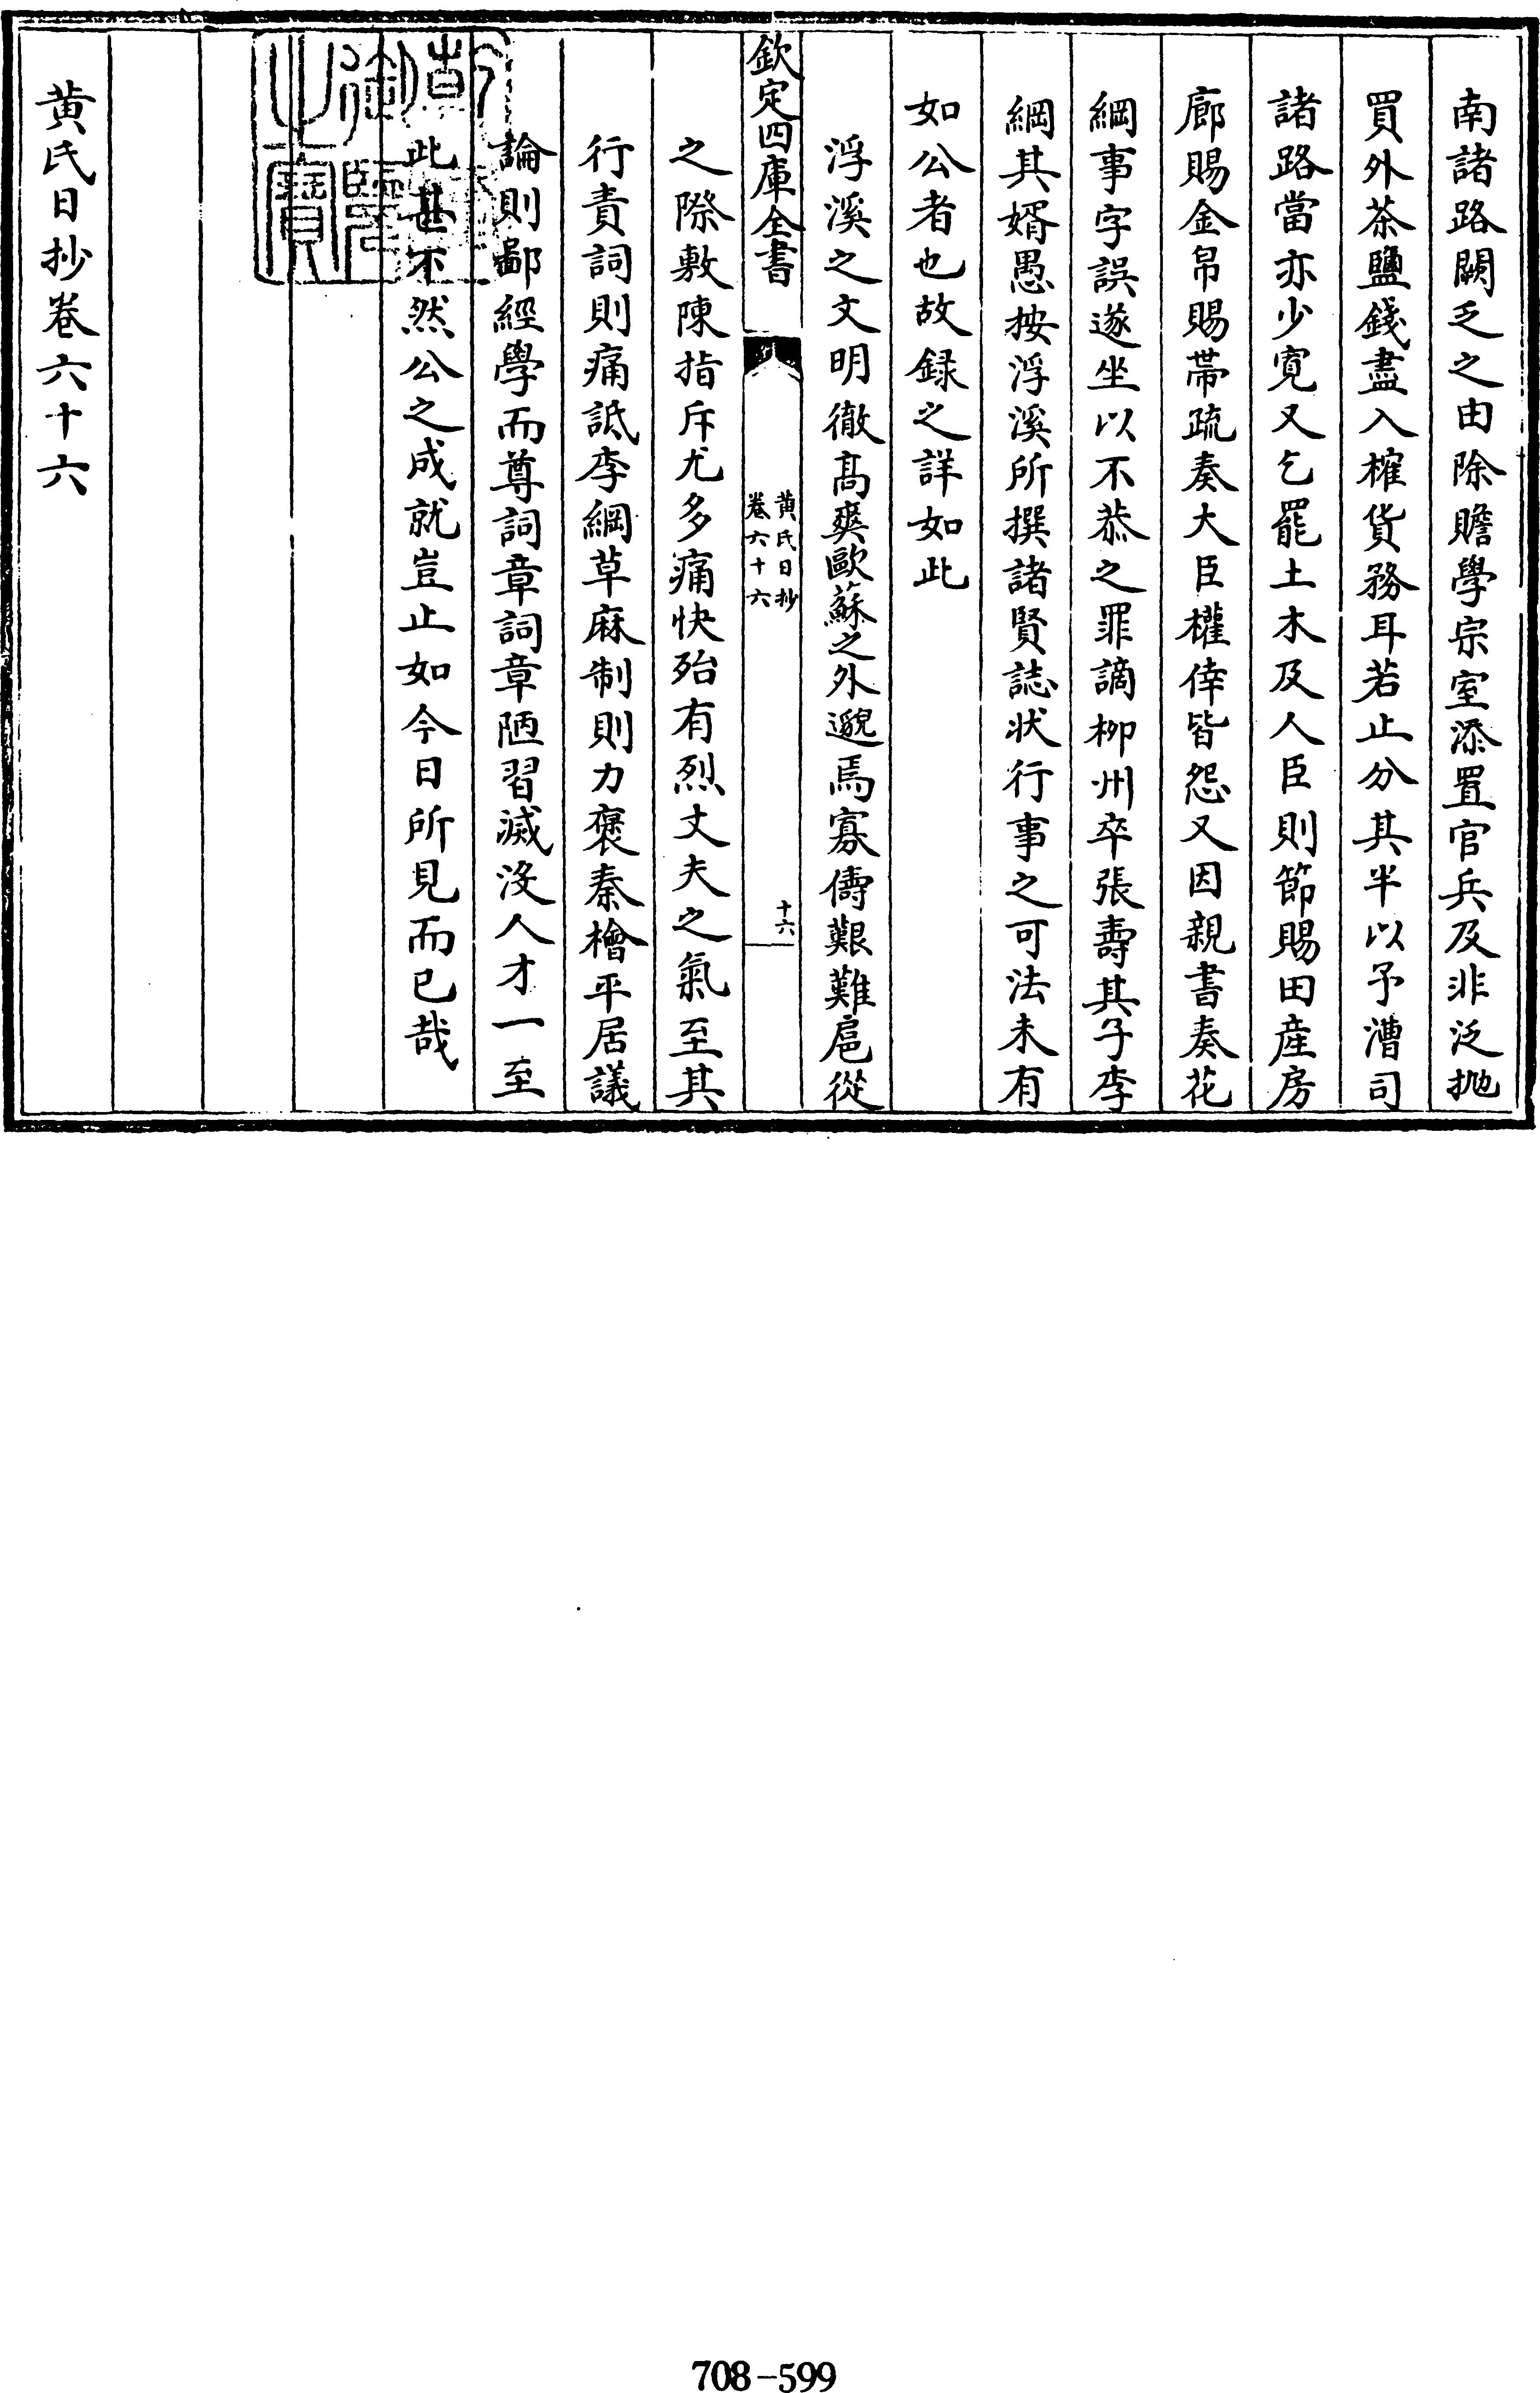 南諸路闕乏之由除贍學宗室添置官兵及非泛抛
買外茶鹽錢盡入榷貨務耳若止分其半以予漕司
諸路當亦少寛又乞罷土木及人臣則節賜田産房
廊賜金帛賜帶疏奏大臣權倖皆怨又因親書奏花
綱事字誤遂坐以不恭之罪謫柳州卒張壽其子李
綱其婿愚按浮溪所撰諸賢誌狀行事之可法未有
如公者也故録之詳如此
浮溪之文明徹髙爽歐蘇之外邈焉寡儔艱難扈從
欽定四庫全書
黄氏日抄
卷六十六
十六
之際敷陳指斥尤多痛快殆有烈丈夫之氣至其
行責詞則痛詆李綱草麻制則力褒秦檜平居議
論則鄙經學而尊詞章詞章陋習滅没人才一至
此甚不然公之成就豈止如今日所見而已哉
黄氏日抄卷六十六
708-599